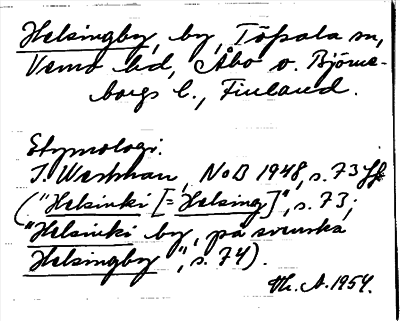 Helsingby, by, Töfsala sn,
Vemo hd, Åbo o. Björne-
borgs l., Finland.
Etymologi.
T. Westman, NoB 1948, s. 73 ff
("Helsinki [= Helsing]", s. 73;
"Helsinki by, på svenska
Helsingby", s. 74).
A. 1954.